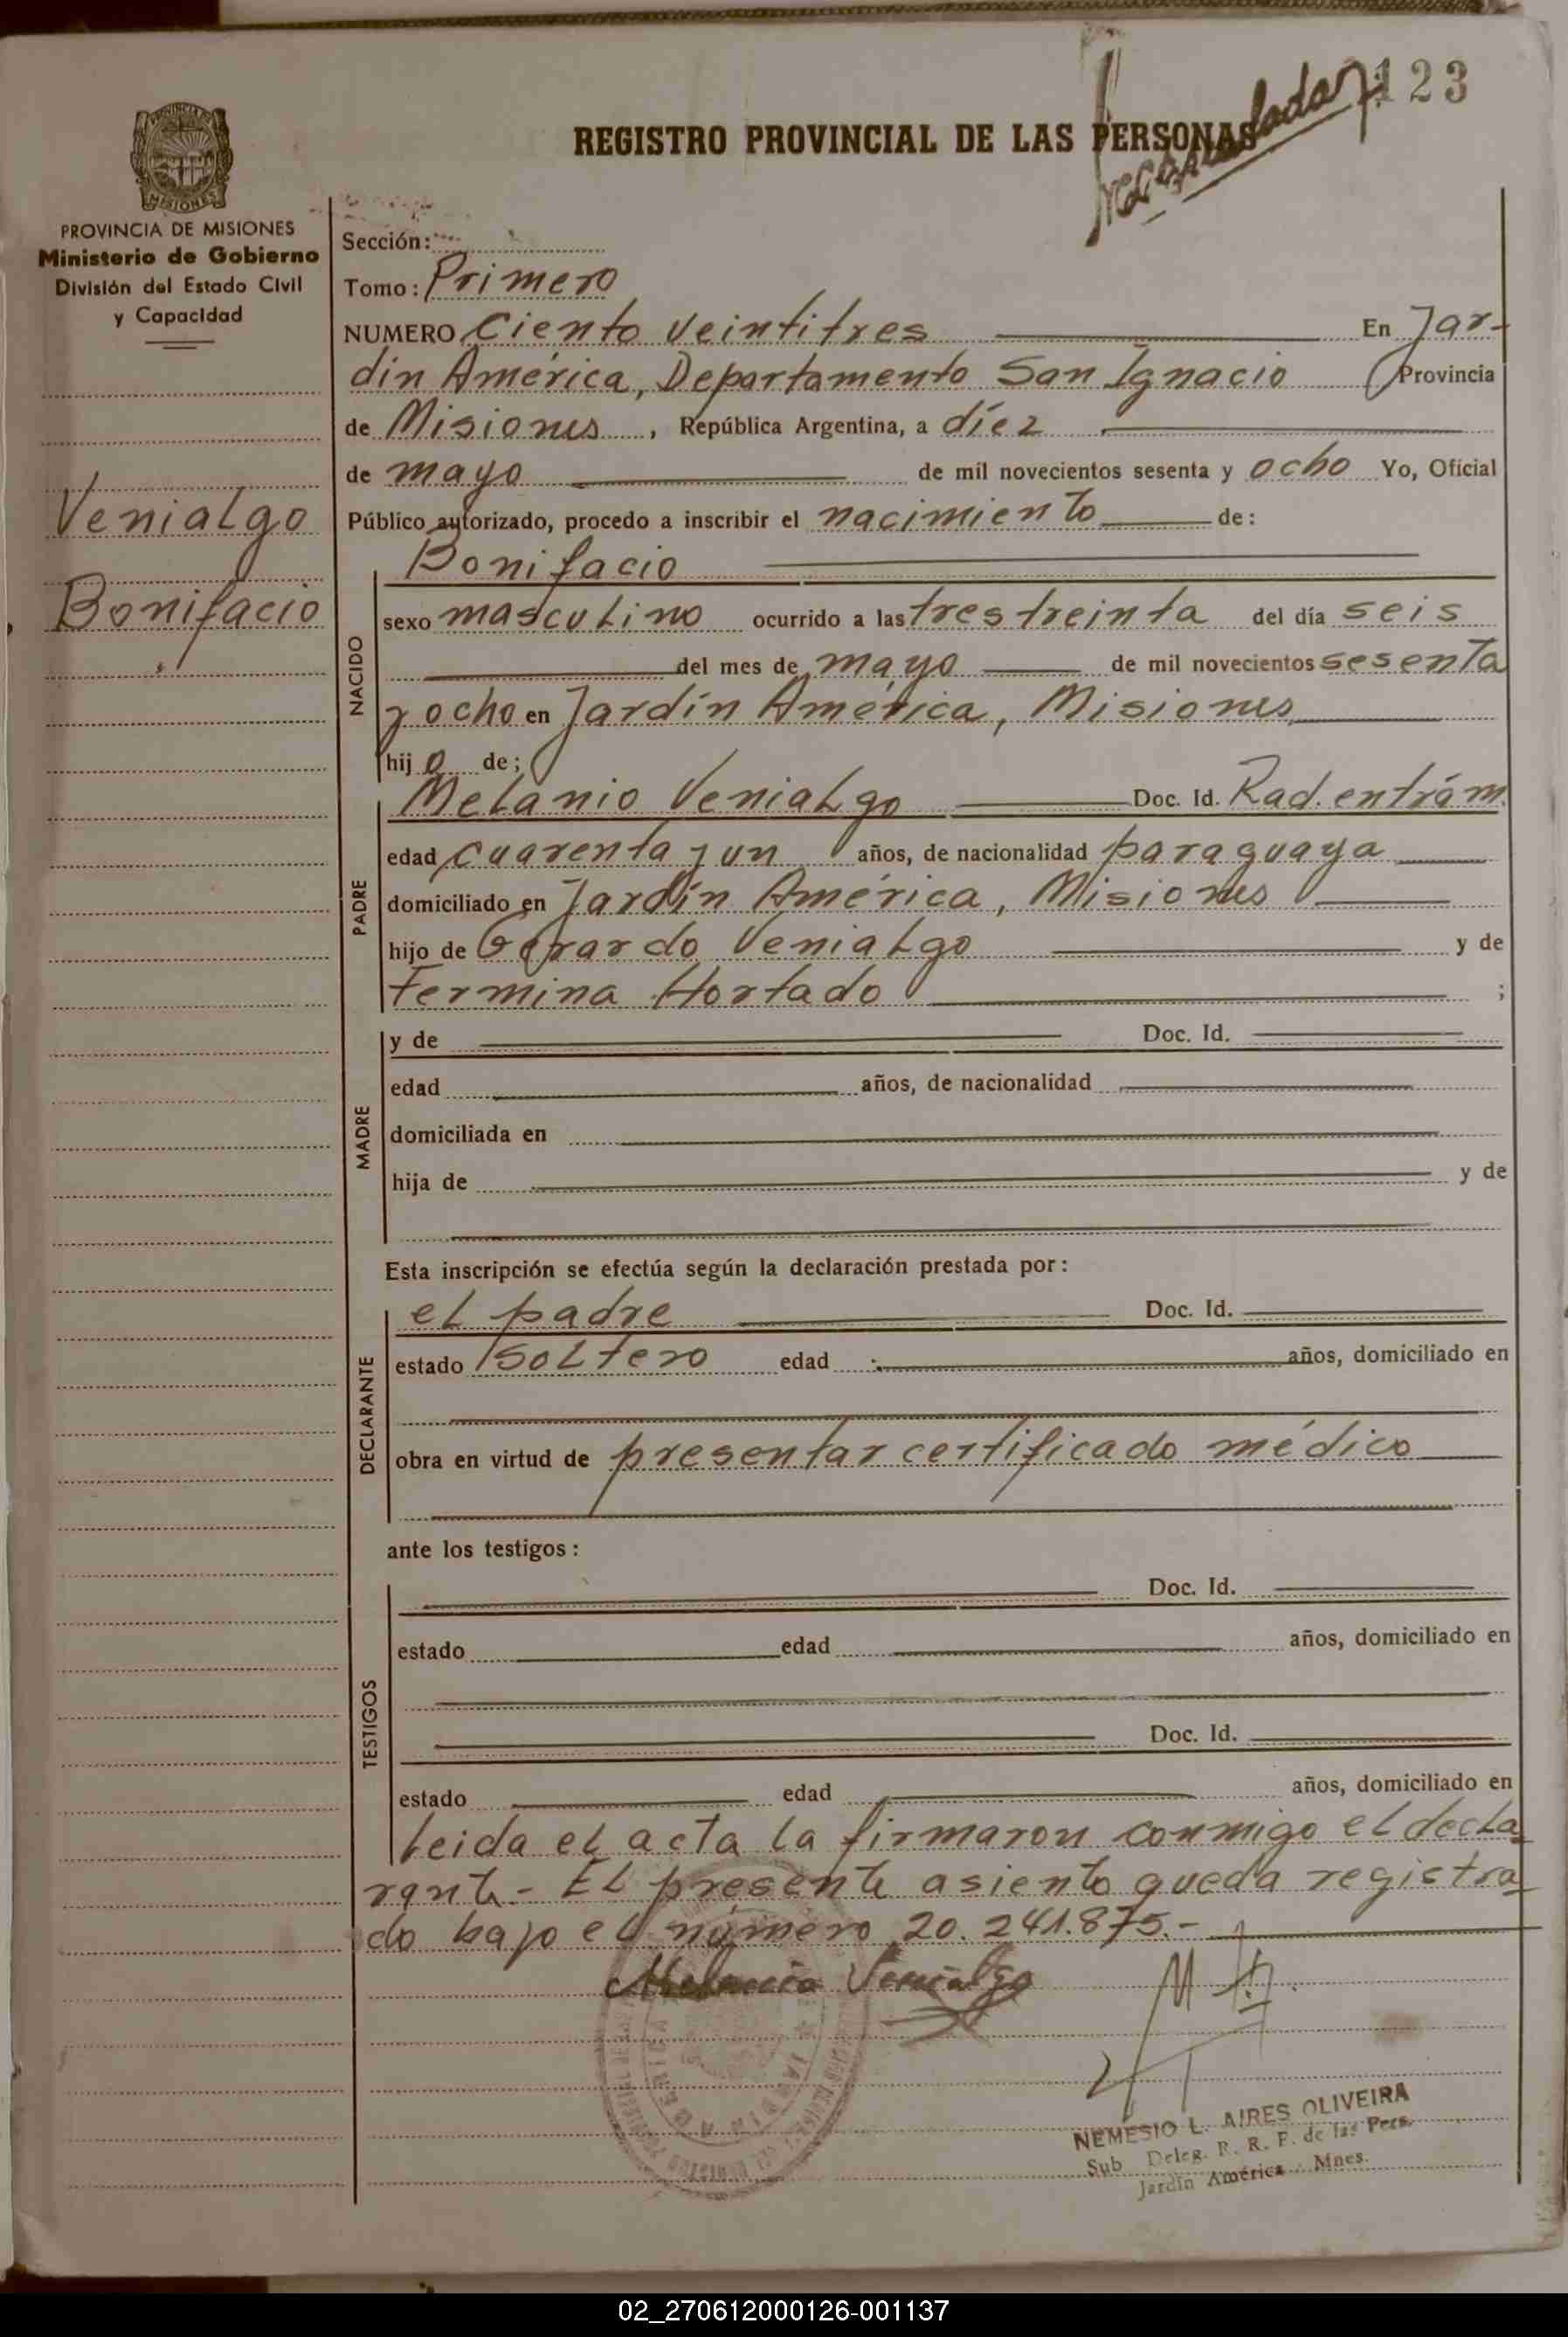 123
REGISTRO PROVINCIAL DE LAS PERSONAS
PROVINCIA DE MISIONES
Ministerio de Gobierno
División del Estado Civil
y Capacidad
Venialgo
Bonifacio
Sección:
Tomo: Primero
NUMERO Ciento veintitres En Jar-
dín América, Departamento San Ignacio Provincia
de Misiones, República Argentina, a díez
de mayo de mil novecientos sesenta y ocho Yo, Oficial
Público autorizado, procedo a inscribir el nacimiento de:
NACIDO
Bonifacio
sexo masculino ocurrido a las tres treinta del día seis
del mes de mayo de mil novecientos sesenta
y ocho en Jardín América, Misiones
hijo de;
PADRE
Melanio Venialgo Doc. Id. Rad. entrám.
edad cuarenta y un años, de nacionalidad paraguaya
domiciliado en Jardín América, Misiones
hijo de Gerardo Venialgo y de
Fermina Hortado ;
MADRE
y de Doc. Id.
edad años, de nacionalidad
domiciliada en
hija de y de
Esta inscripción se efectúa según la declaración prestada por:
DECLARANTE
el padre Doc. Id.
estado soltero edad años, domiciliado en
obra en virtud de presentar certificado médico
ante los testigos:
TESTIGOS
Doc. Id.
estado edad años, domiciliado en
Doc. Id.
estado edad años, domiciliado en
leida el acta la firmaron conmigo el decla
rante.- El presente asiento queda registra
do bajo el número 20.241.875.-
Melanio Venialgo
JARDIN AMERICA
NEMESIO L. AIRES OLIVEIRA
Sub Deleg. R. R. P. de las Pers.
Jardín América - Mnes.
02_270612000126-001137